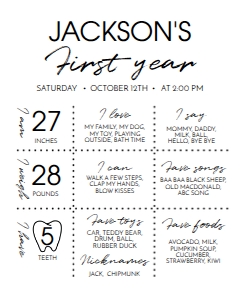 JACKSON'S
First year
SATURDAY • OCTOBER 12TH • AT 2:00 PM
I am
27
INCHES
I love
MY FAMILY, MY DOG,
MY TOY, PLAYING
OUTSIDE, BATH TIME
I say
MOMMY, DADDY,
MILK, BALL,
HELLO, BYE BYE
I weigh
28
POUNDS
I can
WALK A FEW STEPS,
CLAP MY HANDS,
BLOW KISSES
Fave songs
BAA BAA BLACK SHEEP,
OLD MACDONALD,
ABC SONG
I have
5
TEETH
Fave toys
CAR, TEDDY BEAR,
DRUM, BALL,
RUBBER DUCK
Nicknames
JACK, CHIPMUNK
Fave foods
AVOCADO, MILK,
PUMPKIN SOUP,
CUCUMBER,
STRAWBERRY, KIWI